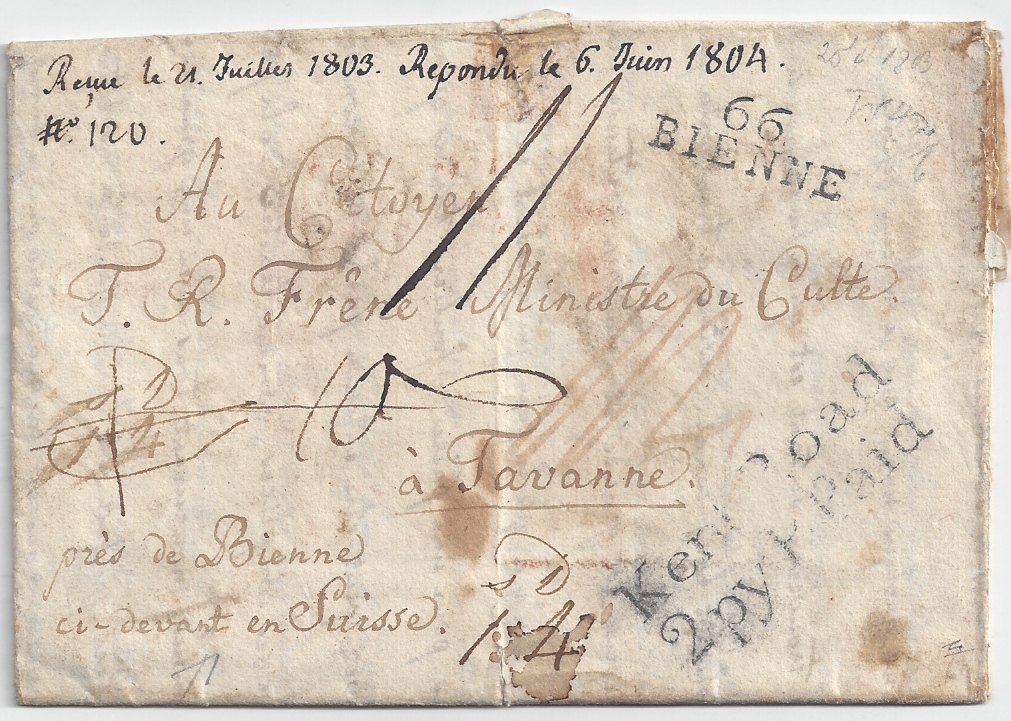 Reçue le 21. Juillet 1803. Repondu le 6. Juin 1804.
N.° 120.
66
BIENNE
Au Citoyen
T. R. Frêne Ministre du Culte.
s D
1 4
à Tavanne.
Kent Road
2py P Paid
près de Bienne
ci-devant en Suisse.
s D
1: 4